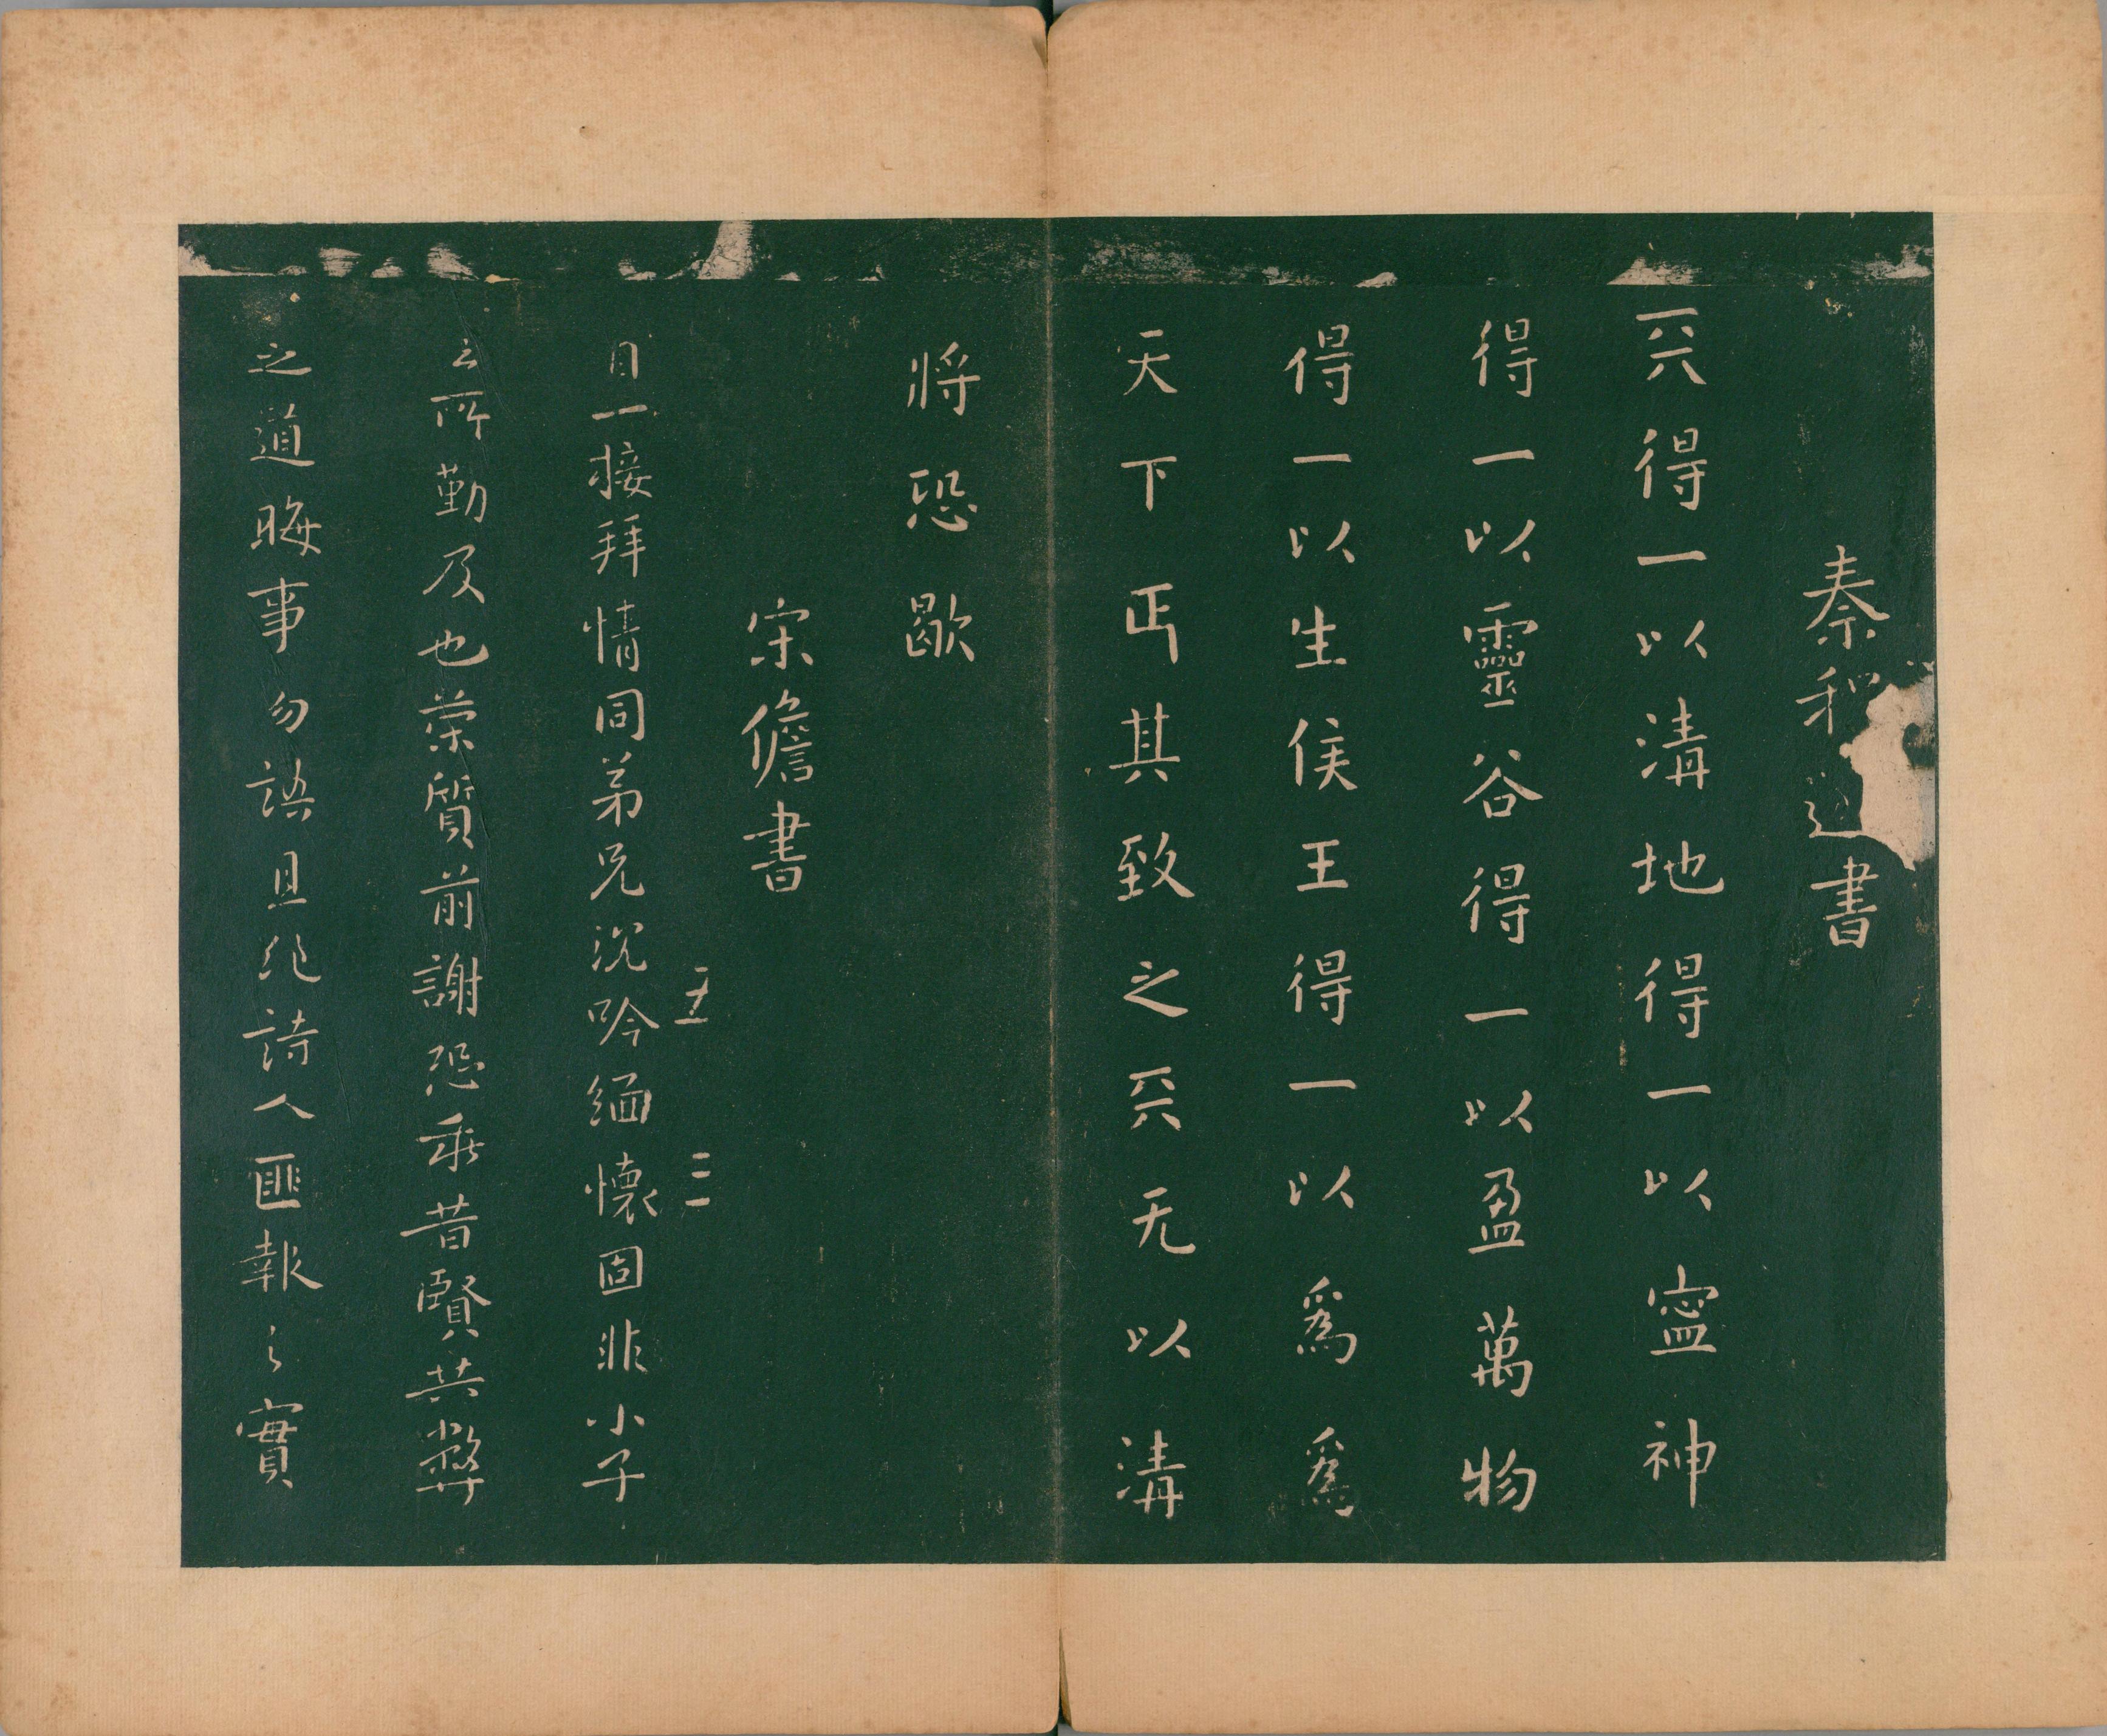 秦程邈書
天得一以清地得一以寧神
得一以靈谷得一以盈萬物
得一以生侯王得一以爲爲
天下正其致之天无以清
將恐歇
宋儋書
五 三
自一接拜情同弟兄沉吟緬懷固非小子
云所勤及也榮質前謝恐乖昔賢共弊
之道晦事勿語且作詩人匪報之實